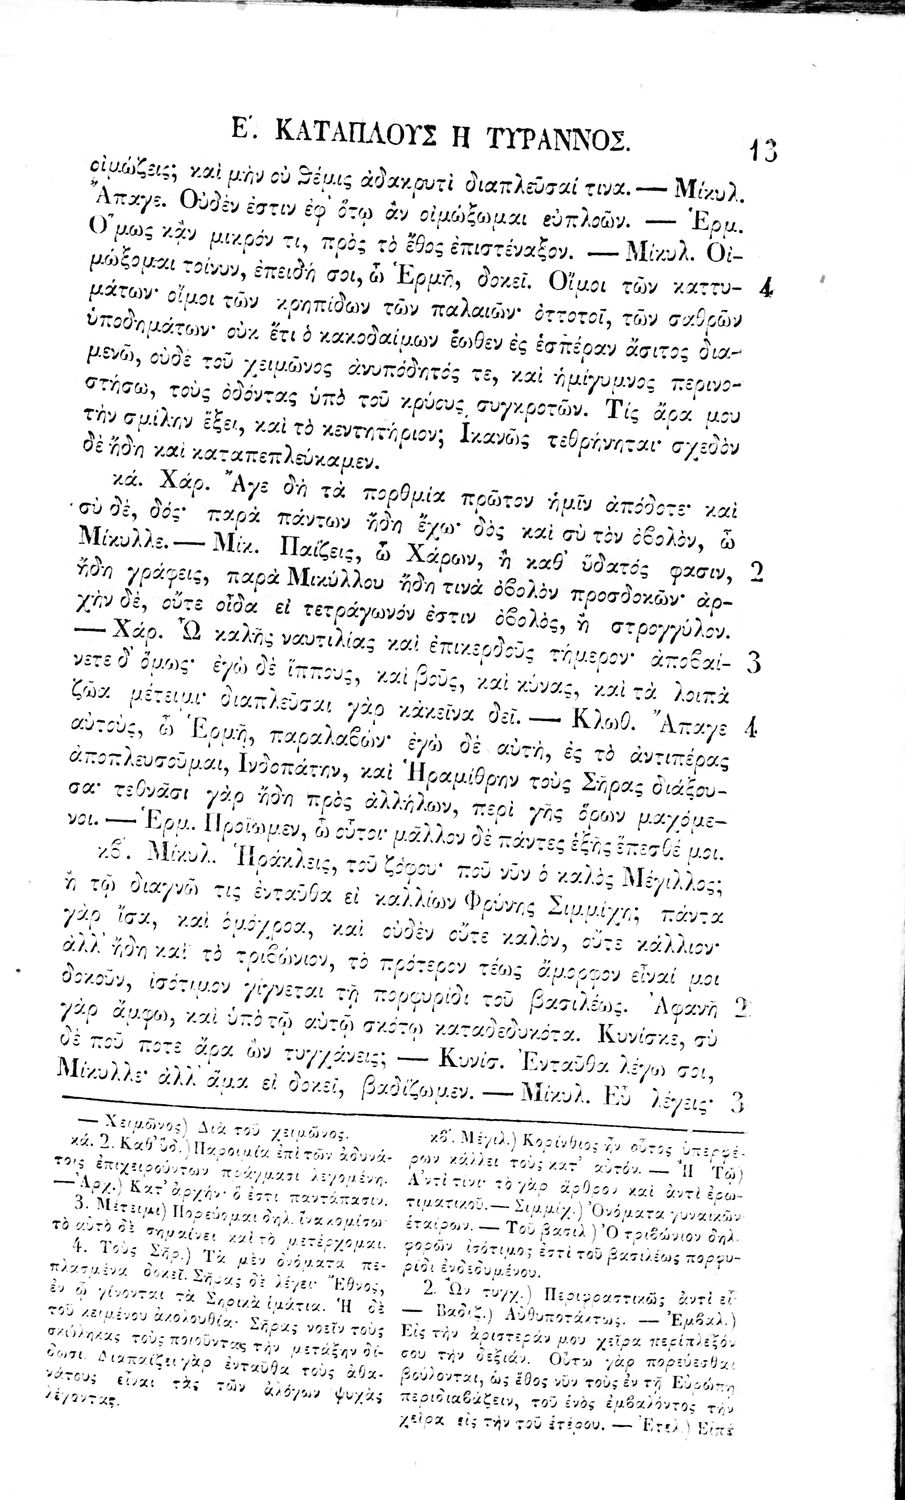 Ε΄. ΚΑΤΑΠΛΟΥΣ Η ΤΥΡΑΝΝΟΣ. 13
οἰμώζεις; καὶ μὴν οὐ θέμις ἀδακρυτὶ διαπλεῦσαί τινα. — Μίκυλ.
Ἄπαγε. Οὐδέν ἐστιν ἐφ᾽ ὅτῳ ἂν οἰμώξομαι εὐπλοῶν. — Ἑρμ.
Ὅμως κᾂν μικρόν τι, πρὸς τὸ ἔθος ἐπιστέναξον. — Μίκυλ. Οἰ-
μώξομαι τοίνυν, ἐπειδή σοι, ὦ Ἑρμῆ, δοκεῖ. Οἴμοι τῶν καττυ- 4
μάτων· οἴμοι τῶν κρηπίδων τῶν παλαιῶν· ὀττοτοῖ, τῶν σαθρῶν
ὑποδημάτων· οὐκ ἔτι ὁ κακοδαίμων ἕωθεν ἐς ἑσπέραν ἄσιτος δια-
μενῶ, οὐδὲ τοῦ χειμῶνος ἀνυπόδητός τε, καὶ ἡμίγυμνος περινο-
στήσω, τοὺς ὀδόντας ὑπὸ τοῦ κρύους συγκροτῶν. Τίς ἄρα μου
τὴν σμίλην ἕξει, καὶ τὸ κεντητήριον; Ἱκανῶς τεθρήνηται· σχεδὸν
δὲ ἤδη καὶ καταπεπλεύκαμεν.
κά. Χάρ. Ἄγε δὴ τὰ πορθμία πρῶτον ἡμῖν ἀπόδοτε· καὶ
σὺ δὲ, δός· παρὰ πάντων ἤδη ἔχω· δὸς καὶ σὺ τὸν ὀβολὸν, ὦ
Μίκυλλε. — Μίκ. Παίζεις, ὦ Χάρων, ἢ καθ᾽ ὕδατός φασιν, 2
ἤδη γράφεις, παρὰ Μικύλλου ἤδη τινὰ ὀβολὸν προσδοκῶν· ἀρ-
χὴν δὲ, οὔτε οἶδα εἰ τετράγωνόν ἐστιν ὀβολὸς, ἢ στρογγύλον.
— Χάρ. Ὢ καλῆς ναυτιλίας καὶ ἐπικερδοῦς τήμερον· ἀποβαί- 3
νετε δ᾽ ὅμως· ἐγὼ δὲ ἵππους, καὶ βοῦς, καὶ κύνας, καὶ τὰ λοιπὰ
ζῶα μέτειμι· διαπλεῦσαι γὰρ κἀκεῖνα δεῖ. — Κλωθ. Ἄπαγε 4
αὐτοὺς, ὦ Ἑρμῆ, παραλαβών· ἐγὼ δὲ αὐτὴ, ἐς τὸ ἀντιπέρας
ἀποπλευσοῦμαι, Ἰνδοπάτην, καὶ Ἡραμίθρην τοὺς Σῆρας διάξου-
σα· τεθνᾶσι γὰρ ἤδη πρὸς ἀλλήλων, περὶ γῆς ὅρων μαχόμε-
νοι. — Ἑρμ. Προΐωμεν, ὦ οὗτοι· μᾶλλον δὲ πάντες ἑξῆς ἕπεσθέ μοι.
κβ΄. Μίκυλ. Ἡράκλεις, τοῦ ζόφου· ποῦ νῦν ὁ καλὸς Μέγιλλος;
ἢ τῷ διαγνῶ τις ἐνταῦθα εἰ καλλίων Φρύνης Σιμμίχη; πάντα
γὰρ ἴσα, καὶ ὁμόχροα, καὶ οὐδὲν οὔτε καλὸν, οὔτε κάλλιον·
ἀλλ᾽ ἤδη καὶ τὸ τριβώνιον, τὸ πρότερον τέως ἄμορφον εἶναί μοι
δοκοῦν, ἰσότιμον γίγνεται τῇ πορφυρίδι τοῦ βασιλέως. Ἀφανῆ 2
γὰρ ἄμφω, καὶ ὑπὸ τῷ αὐτῷ σκότῳ καταδεδυκότα. Κυνίσκε, σὺ
δὲ ποῦ ποτε ἄρα ὢν τυγχάνεις; — Κυνίσ. Ἐνταῦθα λέγω σοι,
Μίκυλλε· ἀλλ᾽ ἅμα εἰ δοκεῖ, βαδίζωμεν. — Μίκυλ. Εὖ λέγεις· 3
— Χειμῶνος) Διὰ τοῦ χειμῶνος.
κά. 2. Καθ᾽ ὕδ.) Παροιμία ἐπὶ τῶν ἀδυνά-
τοις ἐπιχειρούντων πράγμασι λεγομένη.
— Ἀρχ.) Κατ᾽ ἀρχήν· ὅ ἐστι παντάπασιν.
3. Μέτειμι) Πορεύομαι δηλ. ἵνα κομίσω·
τὸ αὐτὸ δὲ σημαίνει καὶ τὸ μετέρχομαι.
4. Τοὺς Σῆρ.) Τὰ μὲν ὀνόματα πε-
πλασμένα δοκεῖ. Σῆρας δὲ λέγει· Ἔθνος,
ἐν ᾧ γίνονται τὰ Σηρικὰ ἱμάτια. Ἡ δὲ
τοῦ κειμένου ἀκολουθία· Σῆρας νοεῖν τοὺς
σκώληκας τοὺς ποιοῦντας τὴν μέταξην δί-
δωσι. Διαπαίζει γὰρ ἐνταῦθα τοὺς ἀθα-
νάτους εἶναι τὰς τῶν ἀλόγων ψυχὰς
λέγοντας.
κβ΄. Μέγιλ.) Κορίνθιος ἦν οὗτος ὑπερφέ-
ρων κάλλει τοὺς κατ᾽ αὐτόν. — Ἢ Τῷ)
Ἀντὶ τινι· τὸ γὰρ ἄρθρον καὶ ἀντὶ ἐρω-
τιματικοῦ. — Σιμμίχ.) Ὀνόματα γυναικῶν
ἑταίρων. — Τοῦ βασιλ) Ὁ τριβώνιον δηλ.
φορῶν ἰσότιμος ἐστὶ τοῦ βασιλέως πορφυ-
ρίδι ἐνδεδυμένου.
2. Ὢν τυγχ.) Περιφραστικῶς ἀντὶ εἶ
— Βαδιζ.) Αὐθυποτάκτως. — Ἔμβαλ.)
Εἰς τὴν ἀριστεράν μου χεῖρα περίπλεξόν
σου τὴν δεξιάν. Οὕτω γὰρ πορεύεσθαι
βούλονται, ὡς ἔθος νῦν τοὺς ἐν τῇ Εὐρώπῃ
περιδιαβάζειν, τοῦ ἑνὸς ἐμβαλόντος τὴν
χεῖρα εἰς τὴν τοῦ ἑτέρου. — Ἐτελ.) Εἰπέ